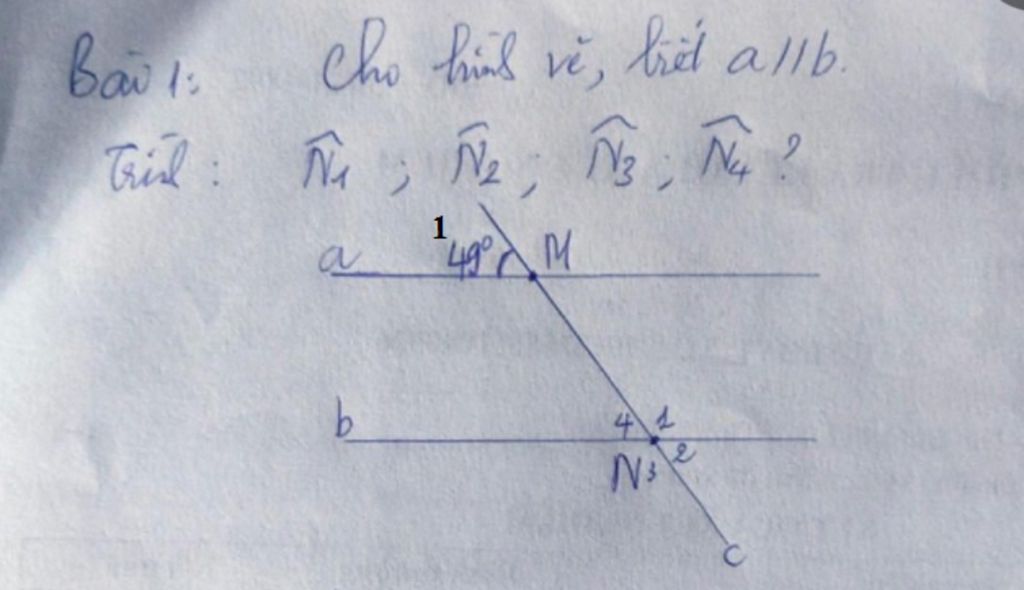 Bài 1: Cho hình vẽ, biết a//b.
Tính: N̂1 ; N̂2 ; N̂3 ; N̂4 ?
1
a 49° M
b 4 1
N 3 2
c